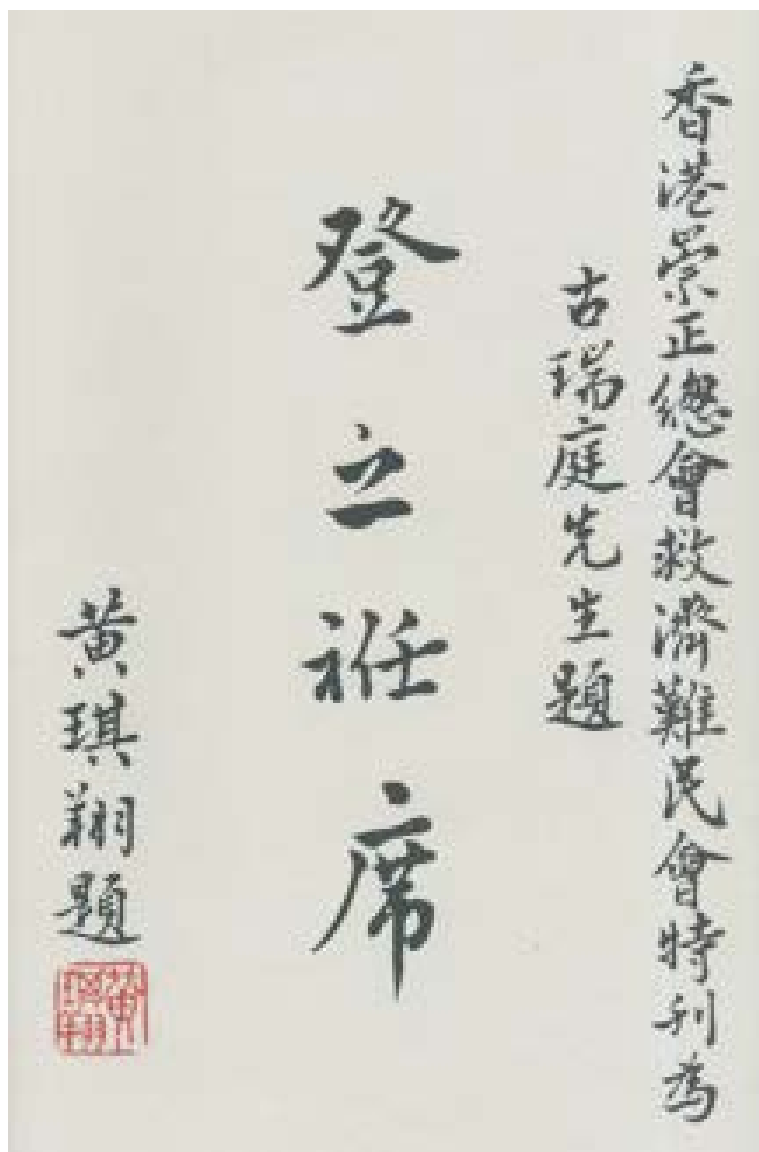 香港崇正總會救濟難民會特刊為
古瑞庭先生題
登之袵席
黃琪翔題
黃琪翔